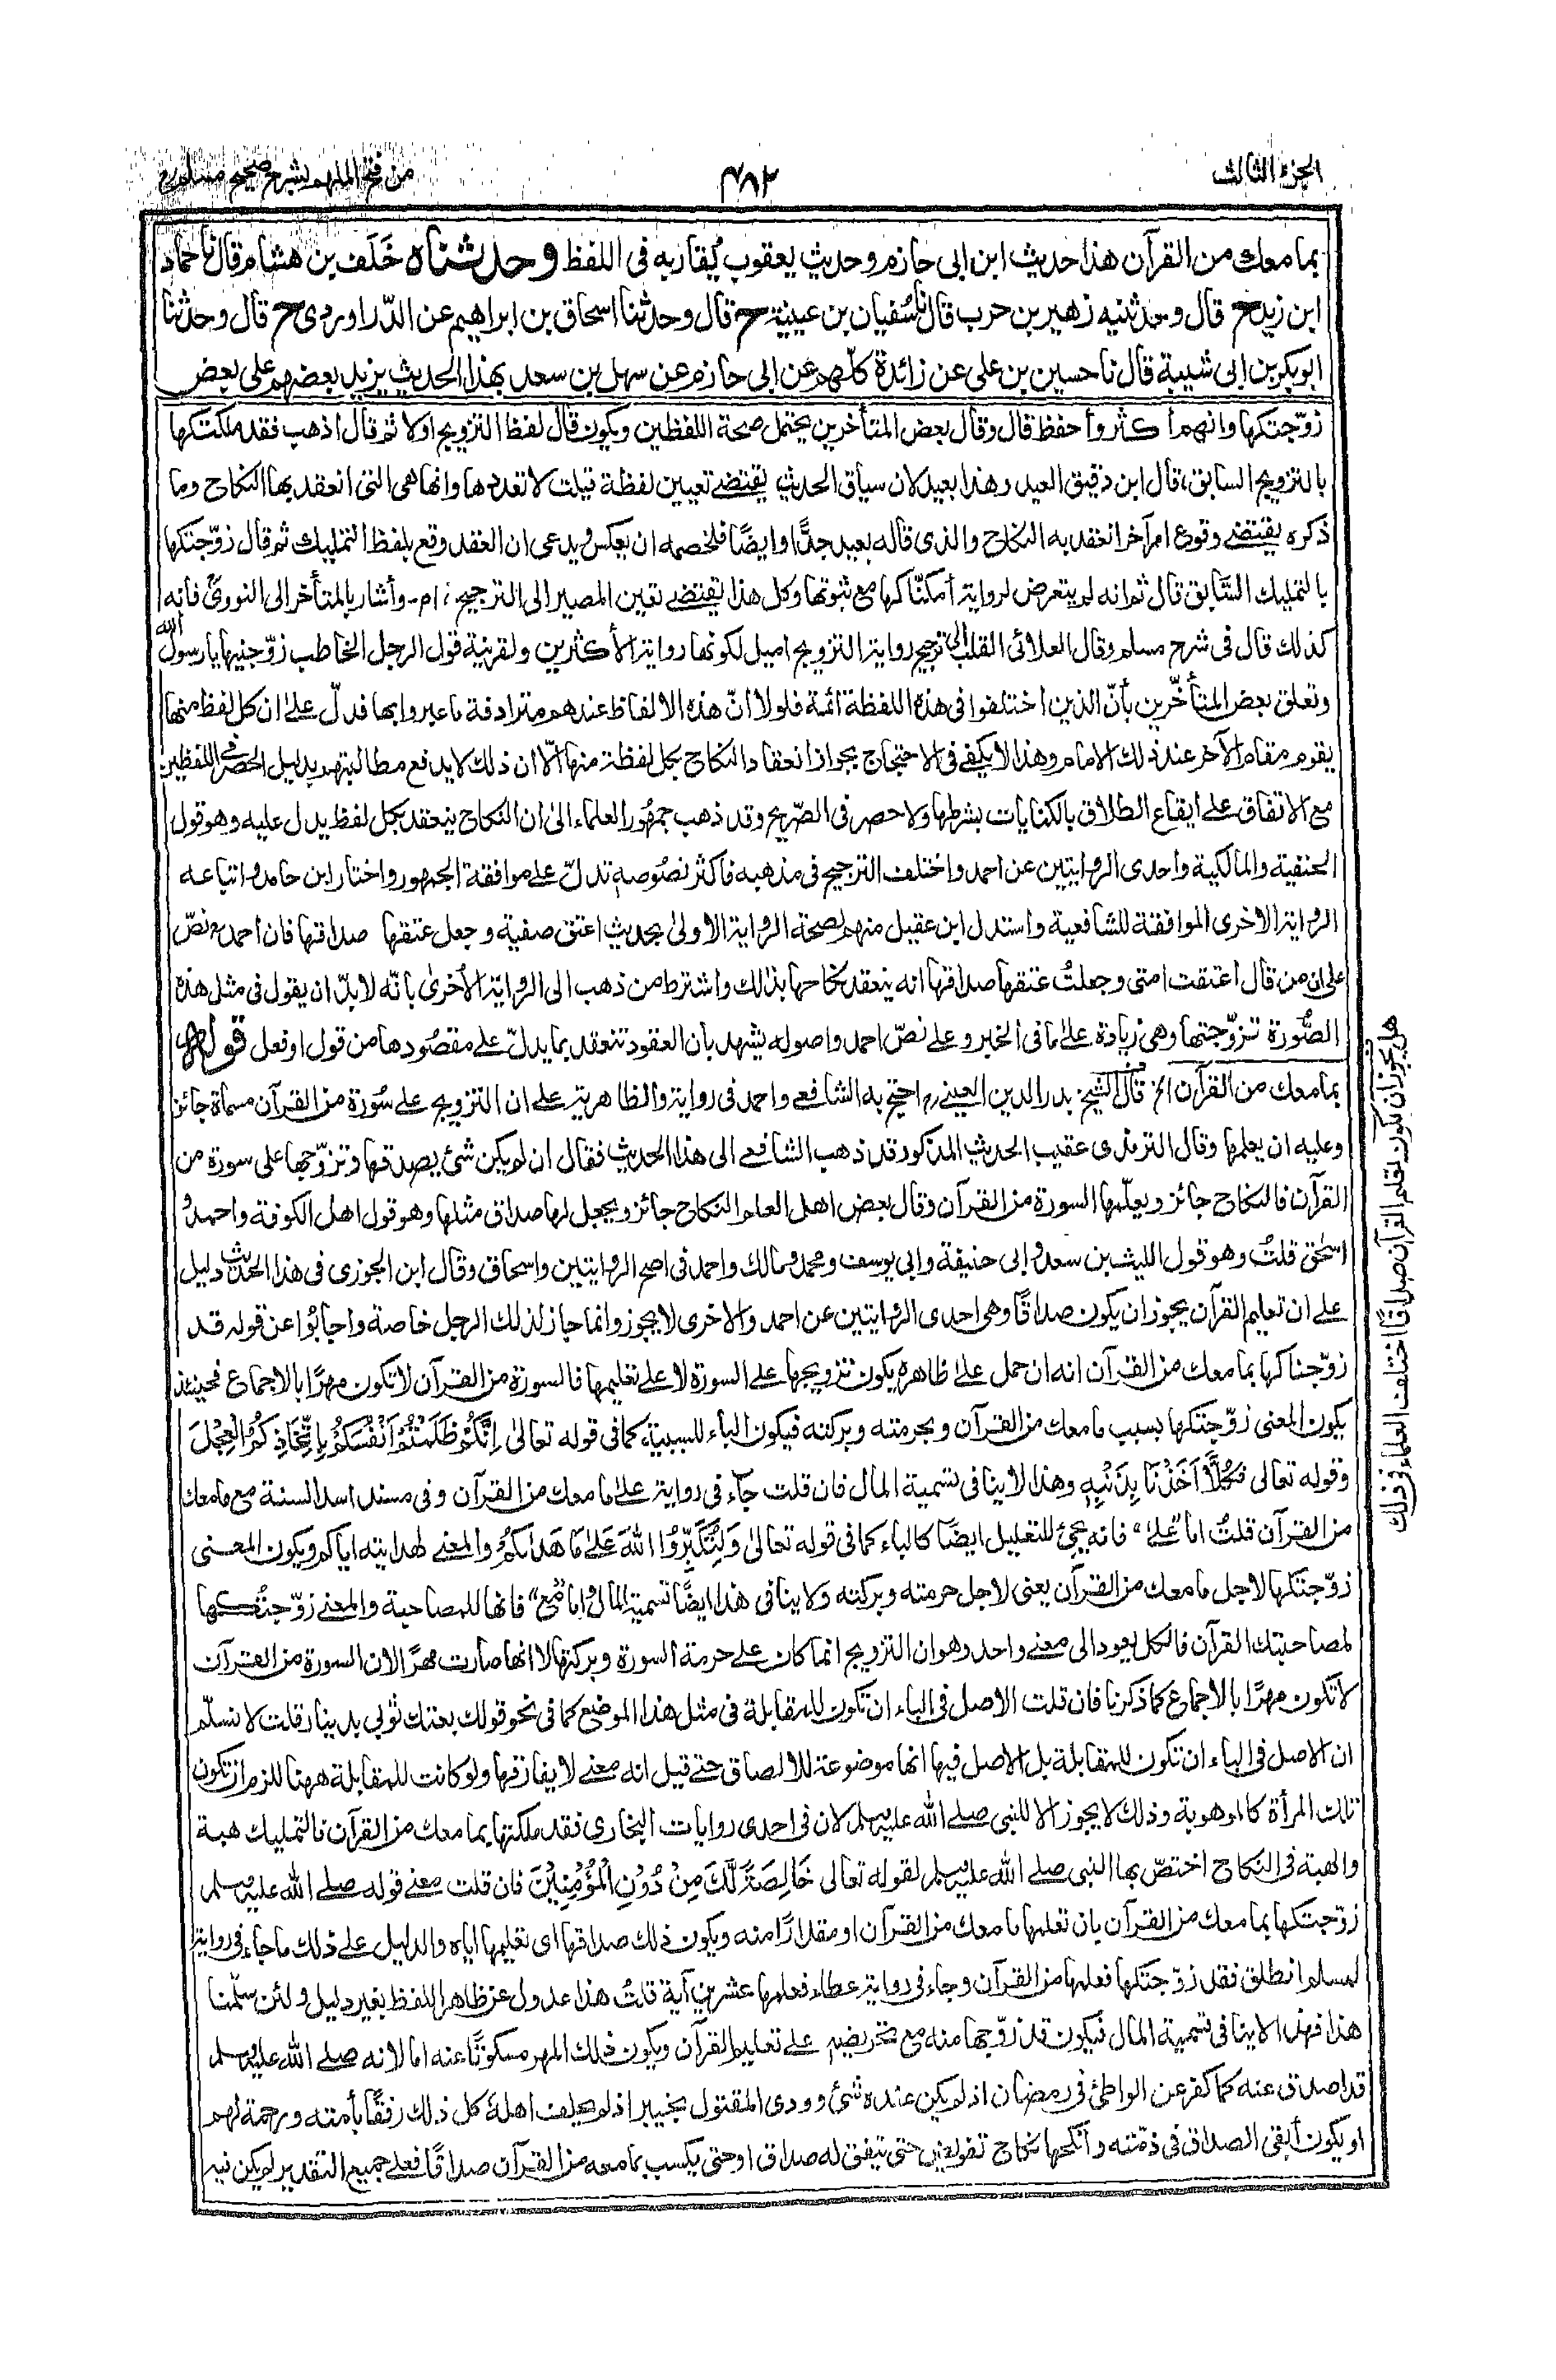 الجزء الثالث
٤٨٢
من فتح الملهم بشرح صحيح مسلم
بما معك من القرآن هذا حديث ابن ابى حازم وحديث يعقوب يُقاربه فى اللفظ وحدثناه خَلَف بن هشام قال نا حماد
ابن زيد ح قال وحدثنيه زهير بن حرب قال نا سُفيان بن عيينة ح قال وحدثنا اسحاق بن ابراهيم عن الدّراوردى ح قال وحدثنا
ابوبكر بن ابى شيبة قال نا حسين بن على عن زائدة كلّهم عن ابى حازم عن سهل بن سعد بهذا الحديث يزيد بعضهم على بعض
زوّجتكها وانهم أكثر وأحفظ قال وقال بعض المتأخرين يحتمل صحة اللفظين ويكون قال لفظ التزويج اولا ثم قال اذهب فقد ملكتكها
بالتزويج السابق، قال ابن دقيق العيد وهذا بعيد لان سياق الحديث يقتضى تعيين لفظة قيلت لا تعددها وانها هى التى انعقد بها النكاح وما
ذكره يقتضى وقوع امر آخر انعقد به النكاح والذى قاله بعيد جدًّا وايضًا فلخصمه ان يعكس ويدعى ان العقد وقع بلفظ التمليك ثم قال زوّجتكها
بالتمليك السَّابق قال ثم انه لم يتعرض لرواية أمكنّاكها مع ثبوتها وكل هذا يقتضى تعين المصير الى الترجيح، اﻫ- وأشار بالمتأخر الى النووىّ فانه
كذلك قال فى شرح مسلم وقال العلائى القلب الى ترجيح رواية التزويج اميل لكونها رواية الأكثرين ولقرينة قول الرجل الخاطب زوّجنيها يا رسول الله
وتعلق بعض المتأخّرين بأنّ الذين اختلفوا فى هذه اللفظة أئمة فلولا انّ هذه الالفاظ عندهم مترادفة ما عبروا بها فدلّ على ان كل لفظ منها
يقوم مقام الآخر عند ذلك الامام وهذا لا يكفى فى الاحتجاج بجواز انعقاد النكاح بكل لفظة منها الّا ان ذلك لا يدفع مطالبتهم بدليل الحصر فى اللفظين
مع الاتفاق على ايقاع الطلاق بالكنايات بشرطها ولا حصر فى الصّريح وقد ذهب جمهُور العلماء الى ان النكاح ينعقد بكل لفظ يدل عليه وهو قول
الحنفية والمالكية واحدى الروايتين عن احمد واختلف الترجيح فى مذهبه فاكثر نصُوصه تدلّ على موافقة الجمهور واختار ابن حامد واتباعه
الرواية الاخرى الموافقة للشافعية واستدل ابن عقيل منهم لصحة الرواية الاولى بحديث اعتق صفية وجعل عتقها صداقها فان احمد نصّ
على ان من قال اعتقت امتى وجعلتُ عتقها صداقها انه ينعقد نكاحها بذلك واشترط من ذهب الى الرواية الأخرى بانّه لابدّ ان يقول فى مثل هذه
الصُّورة تزوّجتها وهى زيادة على ما فى الخبر وعلى نصّ احمد واصوله يشهد بان العقود تنعقد بما يدلّ على مقصُودها من قول او فعل قوله
بما معك من القرآن الخ قال الشيخ بدر الدين العينىرح احتج به الشافعى واحمد فى رواية والظاهرية على ان التزويج على سُورة من القرآن مسماة جائز
وعليه ان يعلمها وقال الترمذى عقيب الحديث المذكور قد ذهب الشافعى الى هذا الحديث فقال ان لم يكن شئ يصدقها وتزوّجها على سورة من
القرآن فالنكاح جائز ويعلّمها السورة من القرآن وقال بعض اهل العلم النكاح جائز ويجعل لها صداق مثلها وهو قول اهل الكوفة واحمد و
اسحٰق قلتُ وهو قول الليث بن سعد وابى حنيفة وابى يوسف ومحمد ومالك واحمد فى اصح الروايتين واسحاق وقال ابن الجوزى فى هذا الحديث دليل
على ان تعليم القرآن يجوز ان يكون صداقًا وهى احدى الروايتين عن احمد والاخرى لا يجوز وانما جاز لذلك الرجل خاصة واجابُوا عن قوله قد
زوّجناكها بما معك من القرآن انه ان حمل على ظاهره يكون تزويجها على السورة لا على تعليمها فالسورة من القرآن لا تكون مهرًا بالاجماع فحينئذ
يكون المعنى زوّجتكها بسبب ما معك من القرآن وبحرمته وبركته فيكون الباء للسببية كما فى قوله تعالى اِنَّكُمْ ظَلَمْتُمْ اَنْفُسَكُمْ بِاتِّخَاذِكُمُ الْعِجْلَ
وقوله تعالى فَكُلًّا اَخَذْنَا بِذَنْبِهٖ وهذا لا ينافى تسمية المال فان قلت جاء فى رواية على ما معك من القرآن وفى مسند اسد السنة مع ما معك
من القرآن قلتُ اما "على" فانه يجئ للتعليل ايضًا كالباء كما فى قوله تعالى وَلِتُكَبِّرُوا اللهَ عَلٰى مَا هَدٰىكُمْ والمعنى لهدايته اياكم ويكون المعنى
زوّجتكها لاجل ما معك من القرآن يعنى لاجل حرمته وبركته ولا ينافى هذا ايضًا تسمية المال واما "مع" فانها للمصاحبة والمعنى زوّجتُكها
لمصاحبتك القرآن فالكل يعود الى معنى واحد وهو ان التزويج انما كان على حرمة السورة وبركتها لا انها صارت مهرًا لان السورة من القرآن
لا تكون مهرًا بالاجماع كما ذكرنا فان قلت الاصل فى الباء ان تكون للمقابلة فى مثل هذا الموضع كما فى نحو قولك بعتك ثوبى بدينار قلت لا نسلّم
ان الاصل فى الباء ان تكون للمقابلة بل الاصل فيها انها موضوعة للالصاق حتى قيل انه معنى لا يفارقها ولو كانت للمقابلة ههنا للزم ان تكون
تلك المرأة كالموهوبة وذلك لا يجوز الا للنبى صلى الله عليه وسلم لان فى احدى روايات البخارى فقد ملكتها بما معك من القرآن فالتمليك هبة
والهبة فى النكاح اختصّ بها النبى صلى الله عليه وسلم لقوله تعالى خَالِصَةً لَّكَ مِنْ دُوْنِ الْمُؤْمِنِيْنَ فان قلت معنى قوله صلى الله عليه وسلم
زوّجتكها بما معك من القرآن بان تعلمها ما معك من القرآن او مقدارًا منه ويكون ذلك صداقها اى تعليمها اياه والدليل على ذلك ما جاء فى رواية
لمسلم انطلق فقد زوّجتكها فعلمها من القرآن وجاء فى رواية عطاء فعلمها عشرين آية قلتُ هذا عدول عن ظاهر اللفظ بغير دليل ولئن سلّمنا
هذا فهذا لا ينافى تسمية المال فيكون قد زوّجها منه مع تحريضه على تعليم القرآن ويكون ذلك المهر مسكوتًا عنه اما لانه صلى الله عليه وسلم
قد اصدق عنه كما كفر عن الواطئ فى رمضان اذ لم يكن عنده شئ وودى المقتول بخيبر اذ لم يحلف اهلهُ كل ذلك رفقًا بأمته ورحمة لهم
او يكون أبقى الصداق فى ذمّته وأنكحها نكاح تفويض حتى يتفق له صداق او حتى يكسب بما معه من القرآن صداقًا فعلى جميع التقدير لم يكن فيه
هل يجوز ان يكون تعليم القرآن صداقًا اختلف العلماء فى ذلك